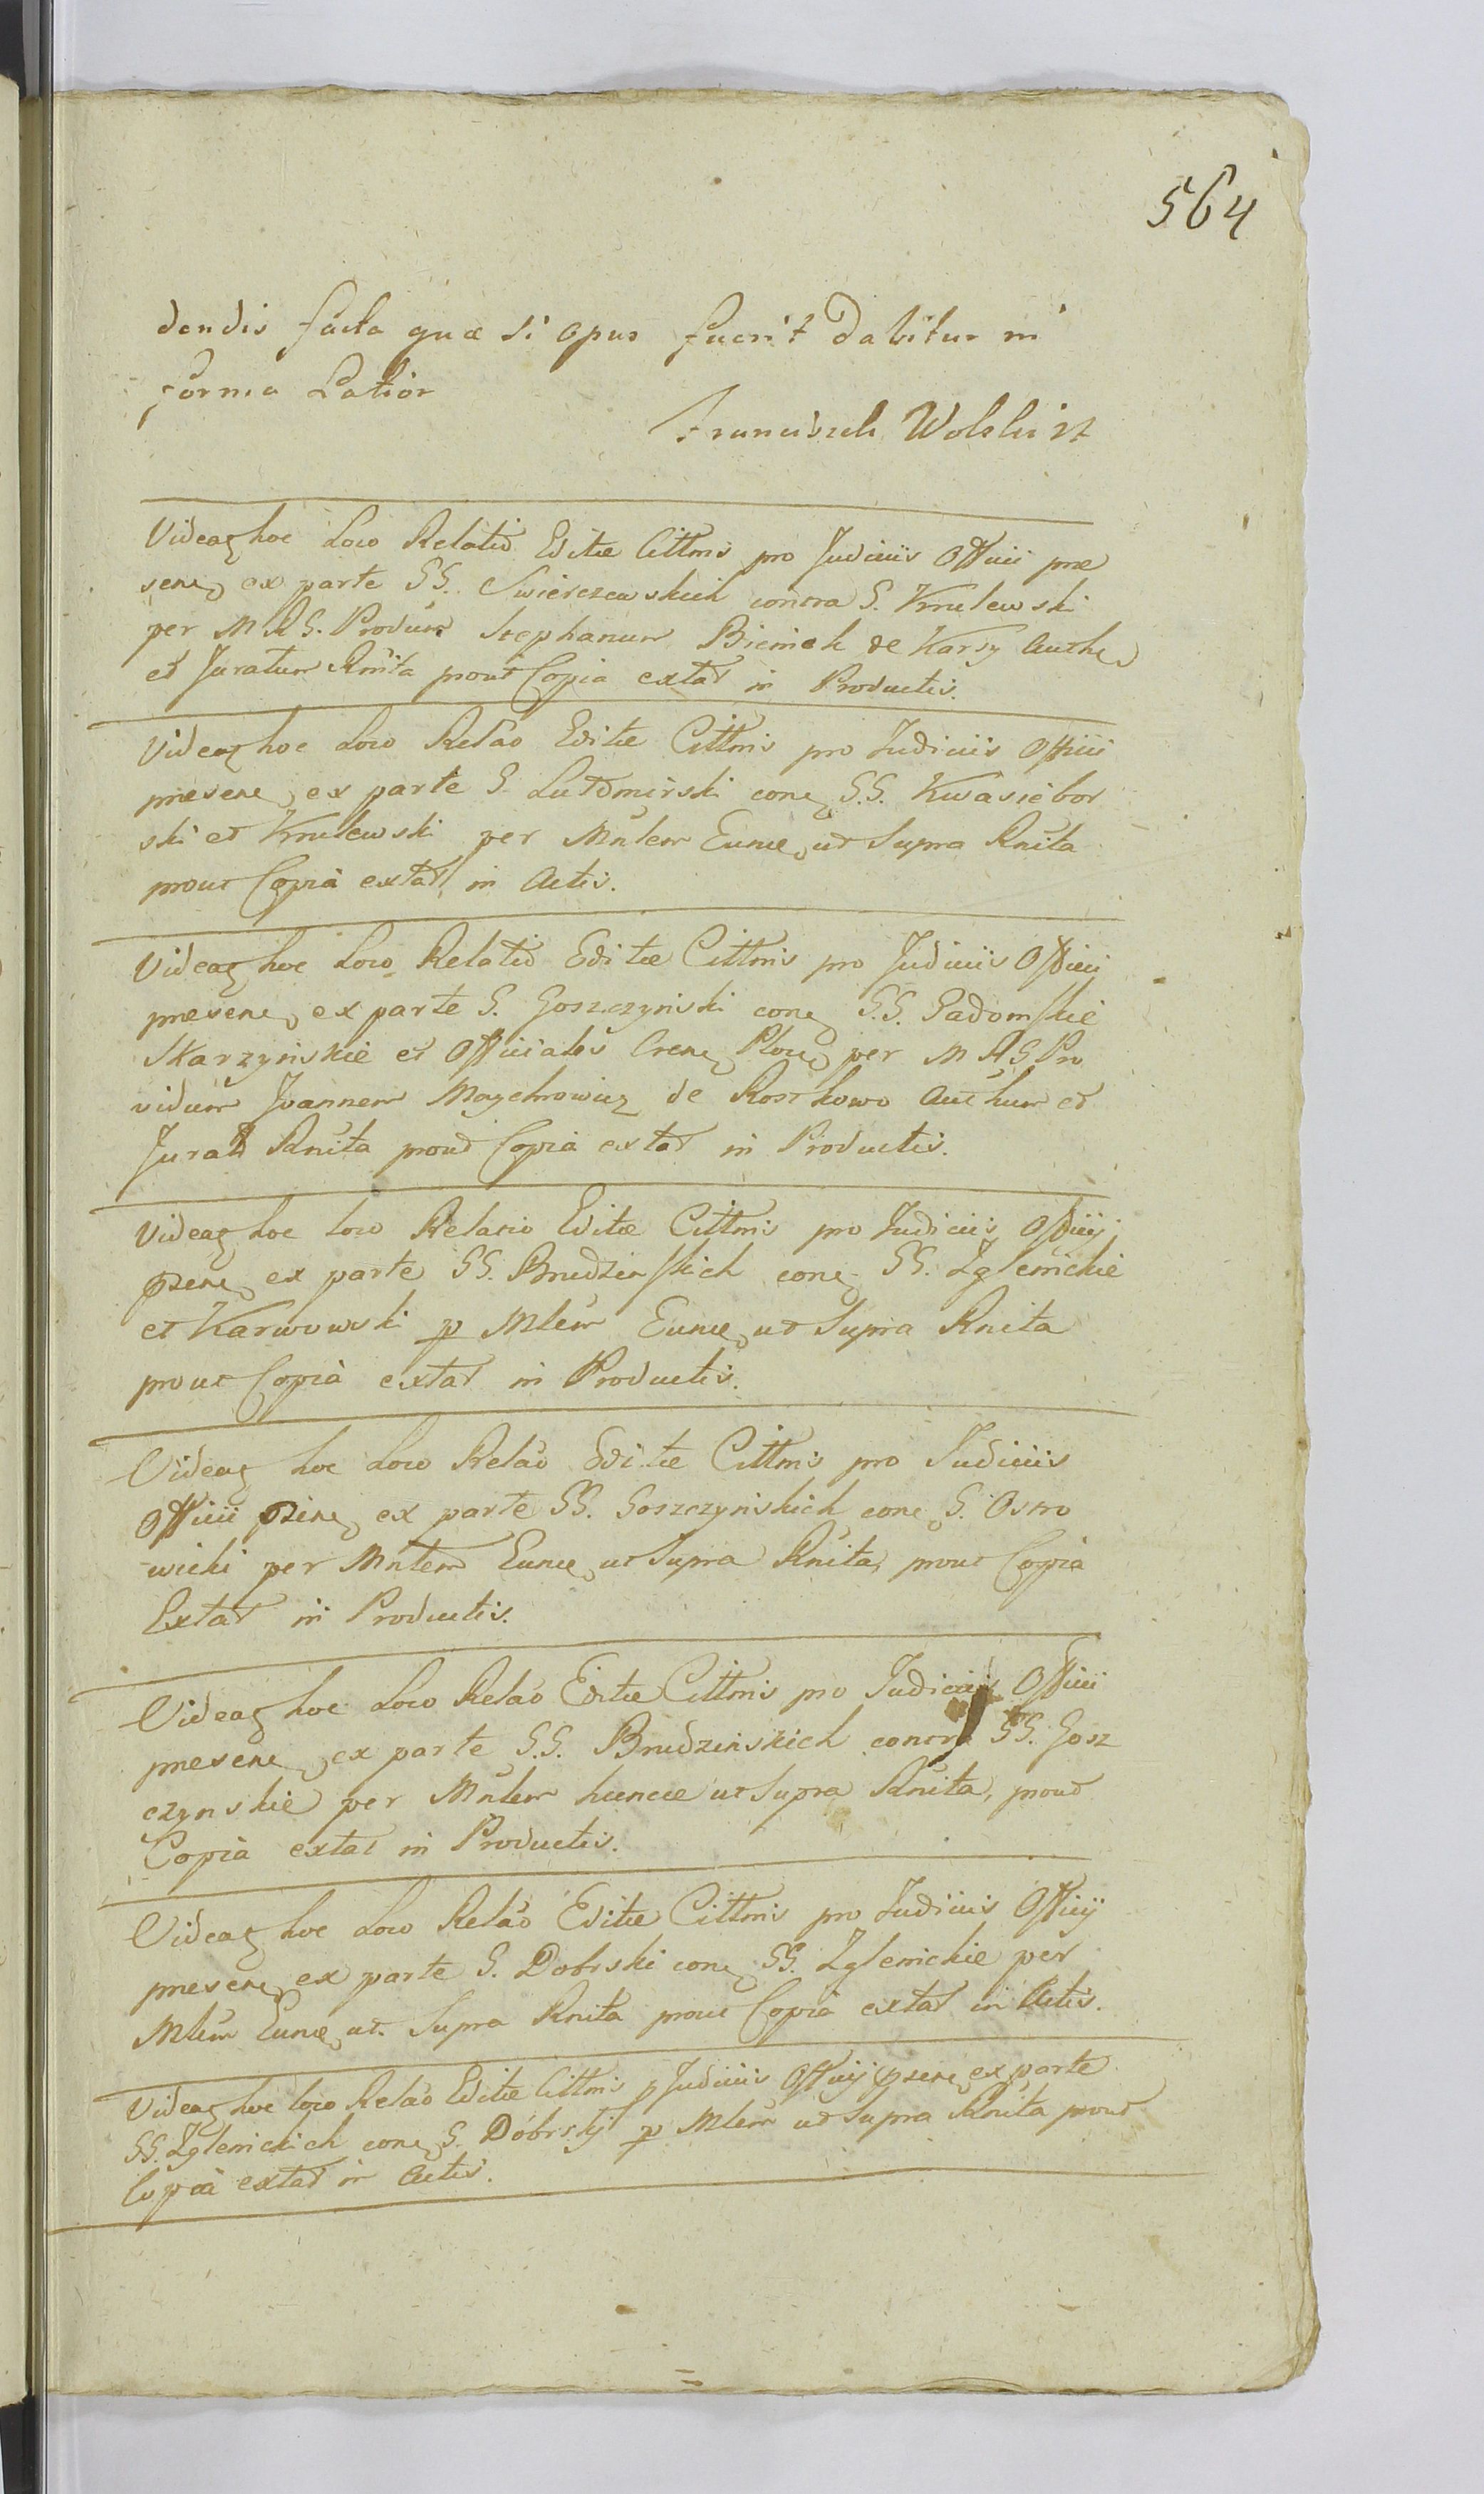 564
dendis facta quæ si opus fuerit dabitur in
forma Latior
Franciszek Wolski
Videaz hoc Loco Relatio Editæ Cittnis pro Judiciis Officii præ
sene, ex parte GG. Swierczewskich contra G. Krulewski
per M R G. Providum Stephanum Bieniek de Karsy Authe
et Juratum Rnita prout Copia extat in Productis.
Videaz hoc Loco Relao Editæ Cittnis pro Judiciis Officii
præsene, ex parte G. Lutomirski cone G.G. Kwasiebor
ski et Krulewski per Mnlem Eunce, ut Supra Rnita
prout Copia extat in Actis.
Videaz hoc Loco Relatio Editæ Cittnis pro Judiciis Officij
præsene, ex parte G. Goszczynski cone G.G. Gadomskie
Skarzynskie et Officiales Crene Ploce per M R G Pro
vidum Joannem Maychrowicz de Rostkowo Authum et
Jurat Rnita prout Copia extat in Productis.
Videaz hoc loco Relatio Editæ Cittnis pro Judiciis Officij
psene ex parte GG. Brudzinskich cone GG. Zglenickie
et Karwowski p Mlem Eunce, ut Supra Rnita
prout Copia extat in Productis.
Videaz hoc Loco Relao Editæ Cittnis pro Judiciis
Officii psene, ex parte GG. Goszczynskich cone G. Ostro
wicki per Mnlem Eunce, ut Supra Rnita, prout Copia
Extat in Productis.
Videaz hoc Loco Relao Editæ Cittnis pro Judiciis Officii
præsene, ex parte G.G. Brudzinskich contra GG. Gosz
czynskie per Mnlem huncce ut Supra Rnita, prout
Copia extat in Productis.
Videaz hoc Loco Relao Editæ Cittnis pro Judiciis Officij
præsene, ex parte G. Dobrski cone GG. Zglenickie per
Mlem Eunce, ut Supra Rnita prout Copia extat in Actis.
Videaz hoc loco Relao Editæ Cittnis p Judiciis Officij psene, ex parte
GG. Zglenickich cone G. Dobrskj p Mlem ut Supra Rnita prout
Copia extat in Actis.